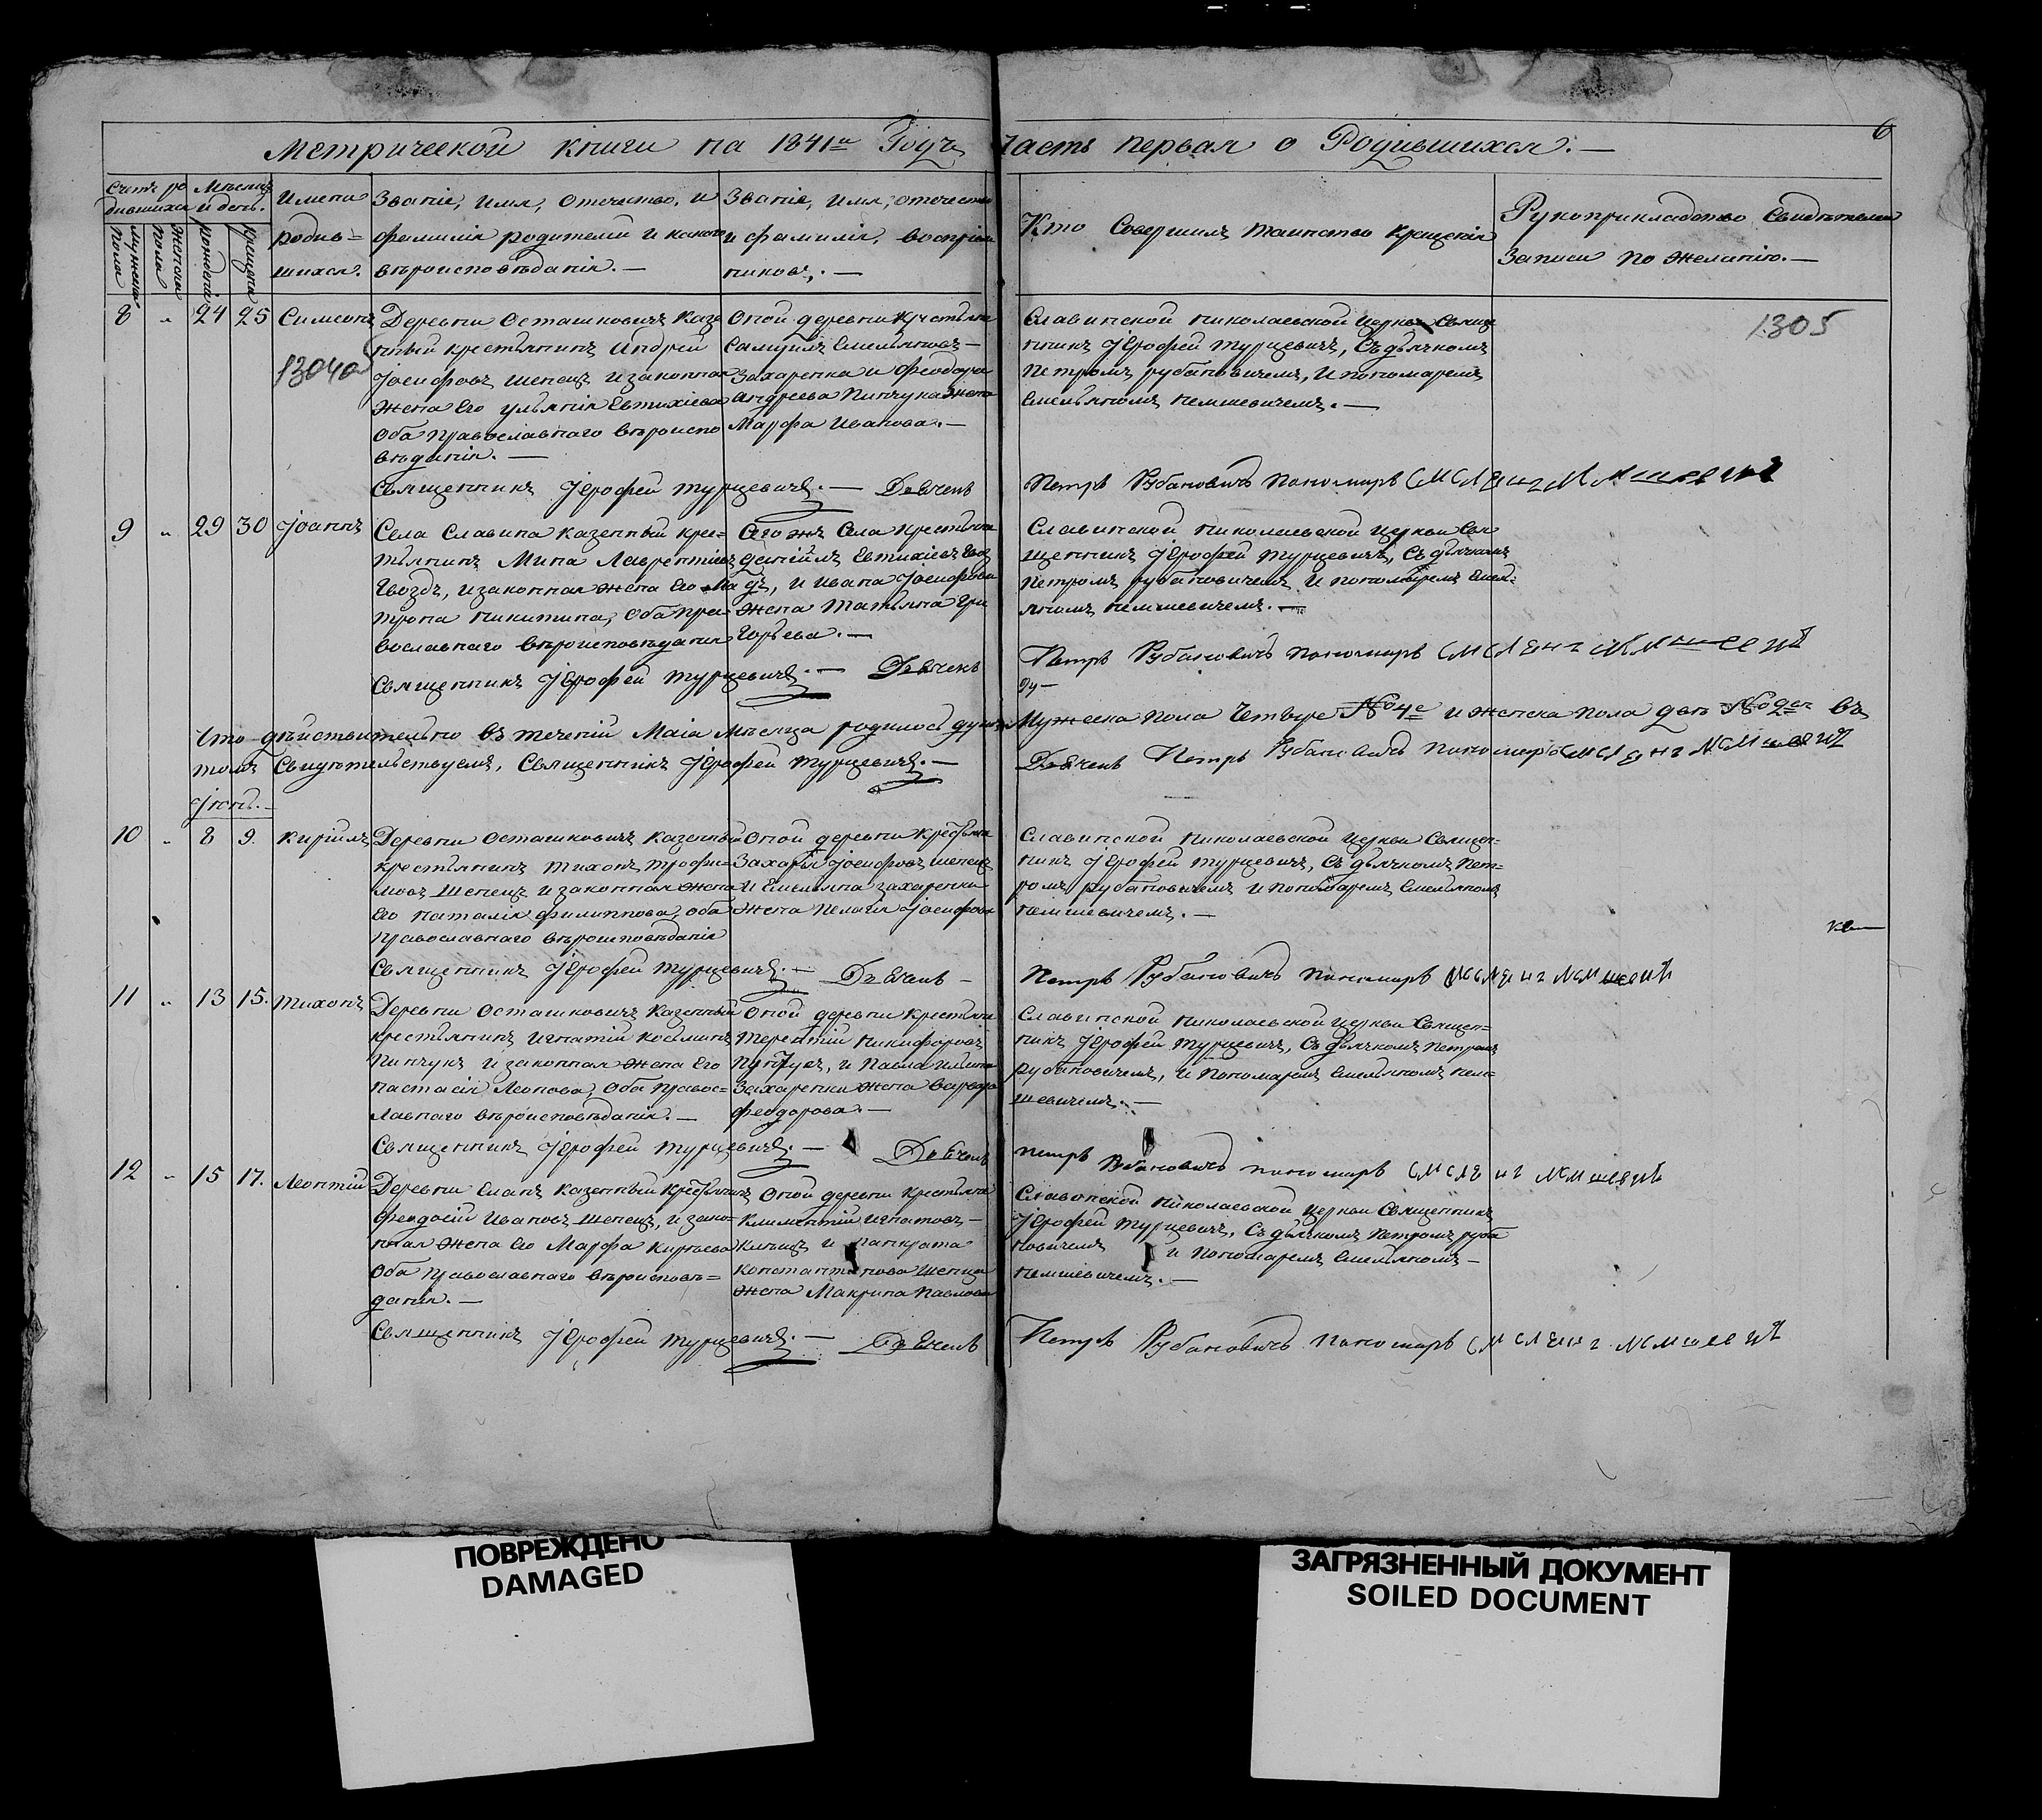 Метрической книги на 1841й Годъ Часть первая о Родившихся. —
6
Счетъ ро
дившихся
Мѣсяцъ
и день.
Мужеска
пола
Женска
пола
рожденія
крещенія
Имена
родив=
шихся.
Званіе, имя, отечество, и
фамилія родителей и какого
вѣроисповѣданія. —
Званіе, имя, отечество
и фамилія, воспріем
никовъ. —
Кто Совершилъ таинство крещенія
Рукоприкладство Свидѣтелей
Записи по желанію. —
8 „ 24 25 Симеонъ
1304об
Деревни Осташковичъ Казе
нный крестьянинъ Андрей
Іосифовъ Шепецъ и законная
жена Его Ульянія Евтихіева
Оба Православнаго вѣроиспо
вѣданія. —
Оной деревни Крестьяне
Самуилъ Емельяновъ —
Захаренка и Феодора
Андреева Пинчука жена
Марфа Иванова. —
Славинской Николаевской Церкви Священ
никъ Іерофей Турцевичъ, Съ дьячкомъ
Петромъ Рубановичемъ, и пономаремъ
Емельяномъ Немшевичемъ. —
1305
Священникъ Іерофей Турцевичъ. — Дьячекъ
Петръ Рубановичъ Пономарь
9 „ 29 30 Іоаннъ
Села Славина казенный кре=
стьянинъ Мина Лаврентіевъ
Гвоздь, и законная жена Его Ма
трона Никитина, Оба Пра=
вославнаго вѣроисповѣданія
Сего жъ Села Крестьяне
Евтихіевъ Гвоз
дь, и Ивана Іосифова
жена Татьяна Гри
горьева. —
Славинской Николаевской Церкви Свя
щенникъ Іерофей Турцевичъ, Съ дьячкомъ
Петромъ Рубановичемъ и пономаремъ Емел=
яномъ Немшевичемъ. —
Священникъ Іерофей Турцевичъ. — Дьячекъ
Петръ Рубановичъ Пономарь
Что дѣйствительно въ теченій Маія мѣсяца родилось душъ Мужеска пола Четыре № 4е и женска пола двѣ № 2е въ
томъ Свидѣтельствуемъ, Священникъ Іерофей Турцевичъ. — Дьячекъ Петръ Рубановичъ Пономарь
Іюнь. —
10 „ 8 9. Кириллъ
Деревни Осташковичъ Казенный
крестьянинъ Тихонъ Трофи=
мовъ Шепецъ и законная жена
Его Наталія Филиппова, оба
Православнаго вѣроисповѣданія
Оной деревни Крестьяне
Захарій Іосифовъ Шепецъ
и Емельяна Захаренки
жена Пелагія Іосифова
Славинской Николаевской Церкви Священ=
никъ Іерофей Турцевичъ, Съ дьячкомъ Пет=
ромъ Рубановичемъ и пономаремъ Емельяномъ
Немшевичемъ. —
Священникъ Іерофей Турцевичъ. — Дьячекъ —
Петръ Рубановичъ Пономарь
11 „ 13 15. Тихонъ
Деревни Осташковичъ Казенный
крестьянинъ Игнатій Косминъ
Пинчукъ и законная жена Его
Настасія Леонова, Оба Правос=
лавнаго вѣроисповѣданія. —
Оной деревни Крестьяне
Терентій Никифоровъ
Пинчукъ, и Павла
Захаренки жена Варвара
Феодорова. —
Славинской Николаевской Церкви Священ=
никъ Іерофей Турцевичъ, Съ дьячкомъ Петромъ
Рубановичемъ, и Пономаремъ Емельяномъ Нем=
шевичемъ. —
Священникъ Іерофей Турцевичъ. — Дьячекъ
Петръ Рубановичъ Пономарь
12 „ 15 17. Леонтій
Деревни Еланъ Казенный Крестьянинъ
Феодосій Ивановъ Шепецъ, и зако=
нная жена Его Марфа Киріева
Оба Православнаго вѣроисповѣ=
данія. —
Оной деревни Крестьяне
Климентій Игнатовъ —
и Панкрата
Константинова Шепца
жена Макрина Павлова
Славинской Николаевской Церкви Священникъ
Іерофей Турцевичъ, Съ дьячкомъ Петромъ Руба
новичемъ и Пономаремъ Емельяномъ —
Немшевичемъ. —
Священникъ Іерофей Турцевичъ. — Дьячекъ
Петръ Рубановичъ Пономарь
ПОВРЕЖДЕНО
DAMAGED
ЗАГРЯЗНЕННЫЙ ДОКУМЕНТ
SOILED DOCUMENT